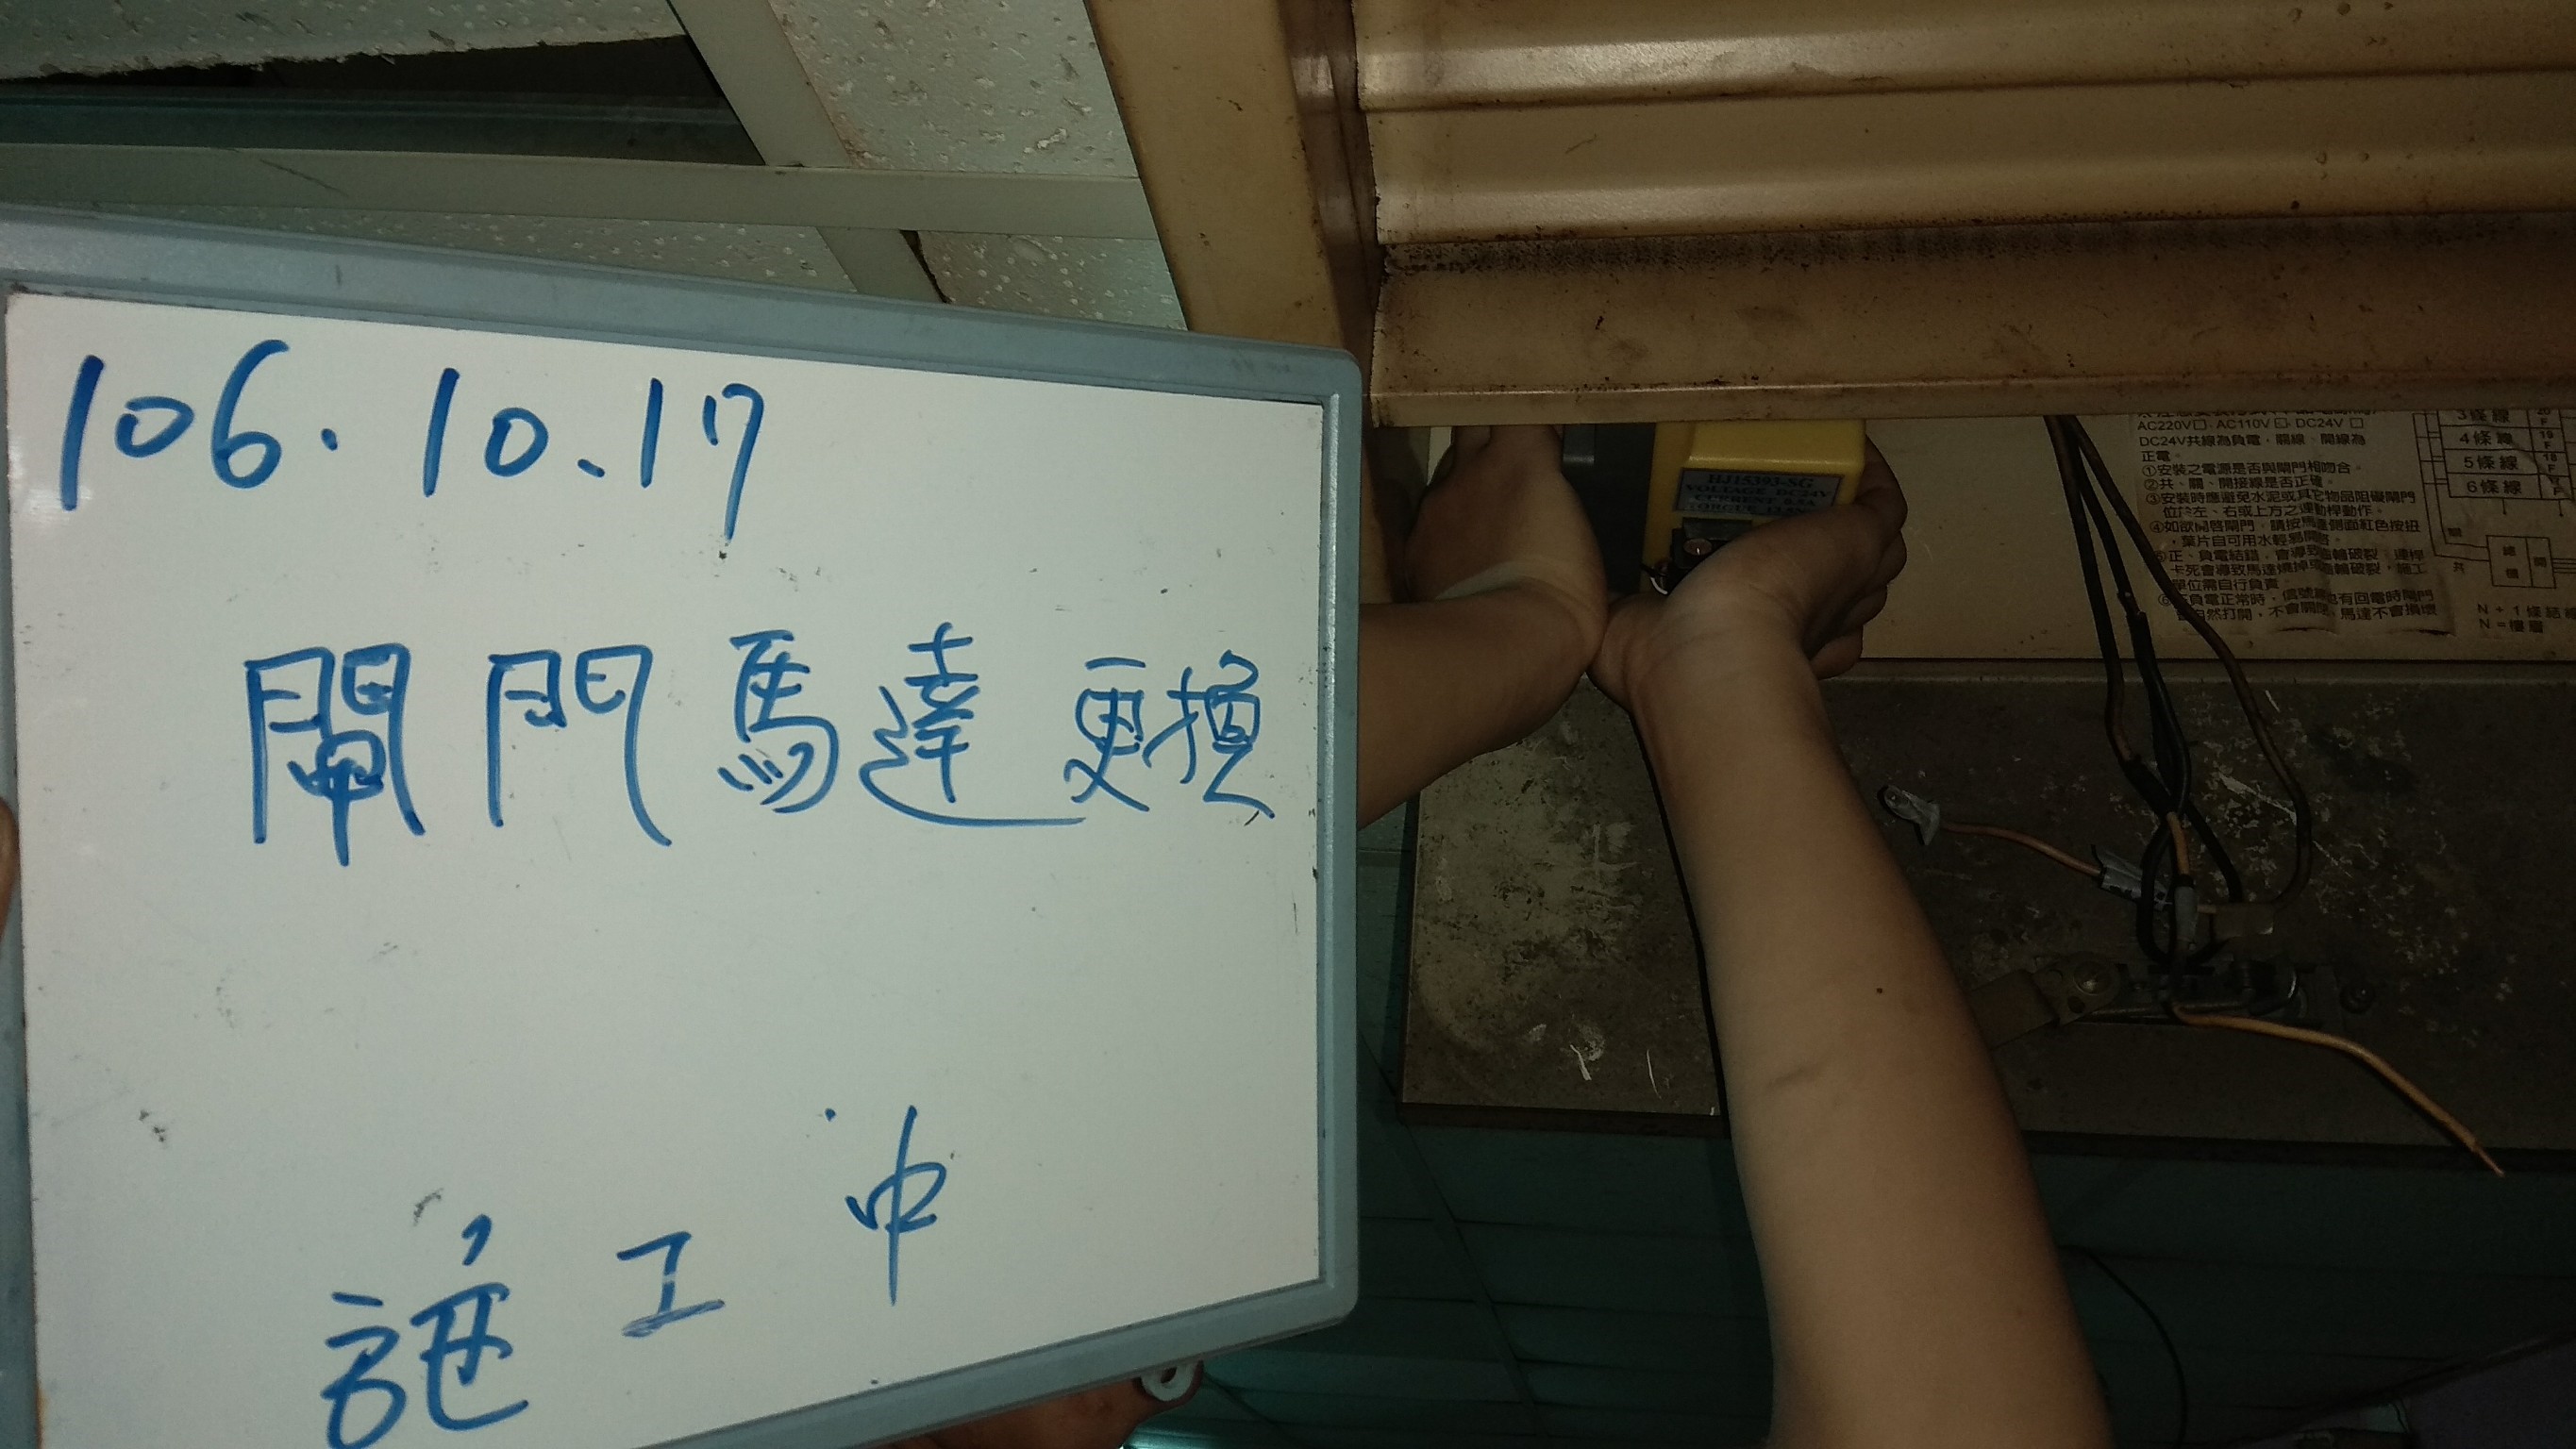 106.10.17
閘門馬達更換
施工中
HJ15393-SG
VOLTAGE DC24V
CURRENT 0.8A
AC220V□ AC110V□ DC24V□
DC24V共線為負電,關線、開線為
正電。
①安裝之電源是否與閘門相吻合。
②共、關、開接線是否正確。
③安裝時應避免水泥或其它物品阻礙閘門
位於左、右或上方之連動桿動作。
④如欲開啓閘門,請按馬達側面紅色按鈕
,葉片自可用水輕易開啓。
⑤正、負電結錯,會導致齒輪破裂,連桿
卡死會導致馬達燒掉或齒輪破裂,施工
單位需自行負責。
負電正常時,信號線也有回電時閘門
自然打開,不會關閉,馬達不會損壞
3條線
4條線 19F
5條線 18F
6條線
共
開
N+1條結線
N=樓層